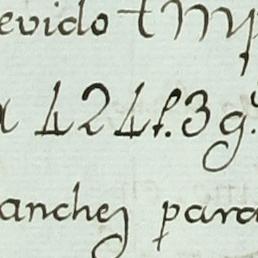 evido tmp
a 424f.3g.
anchez para